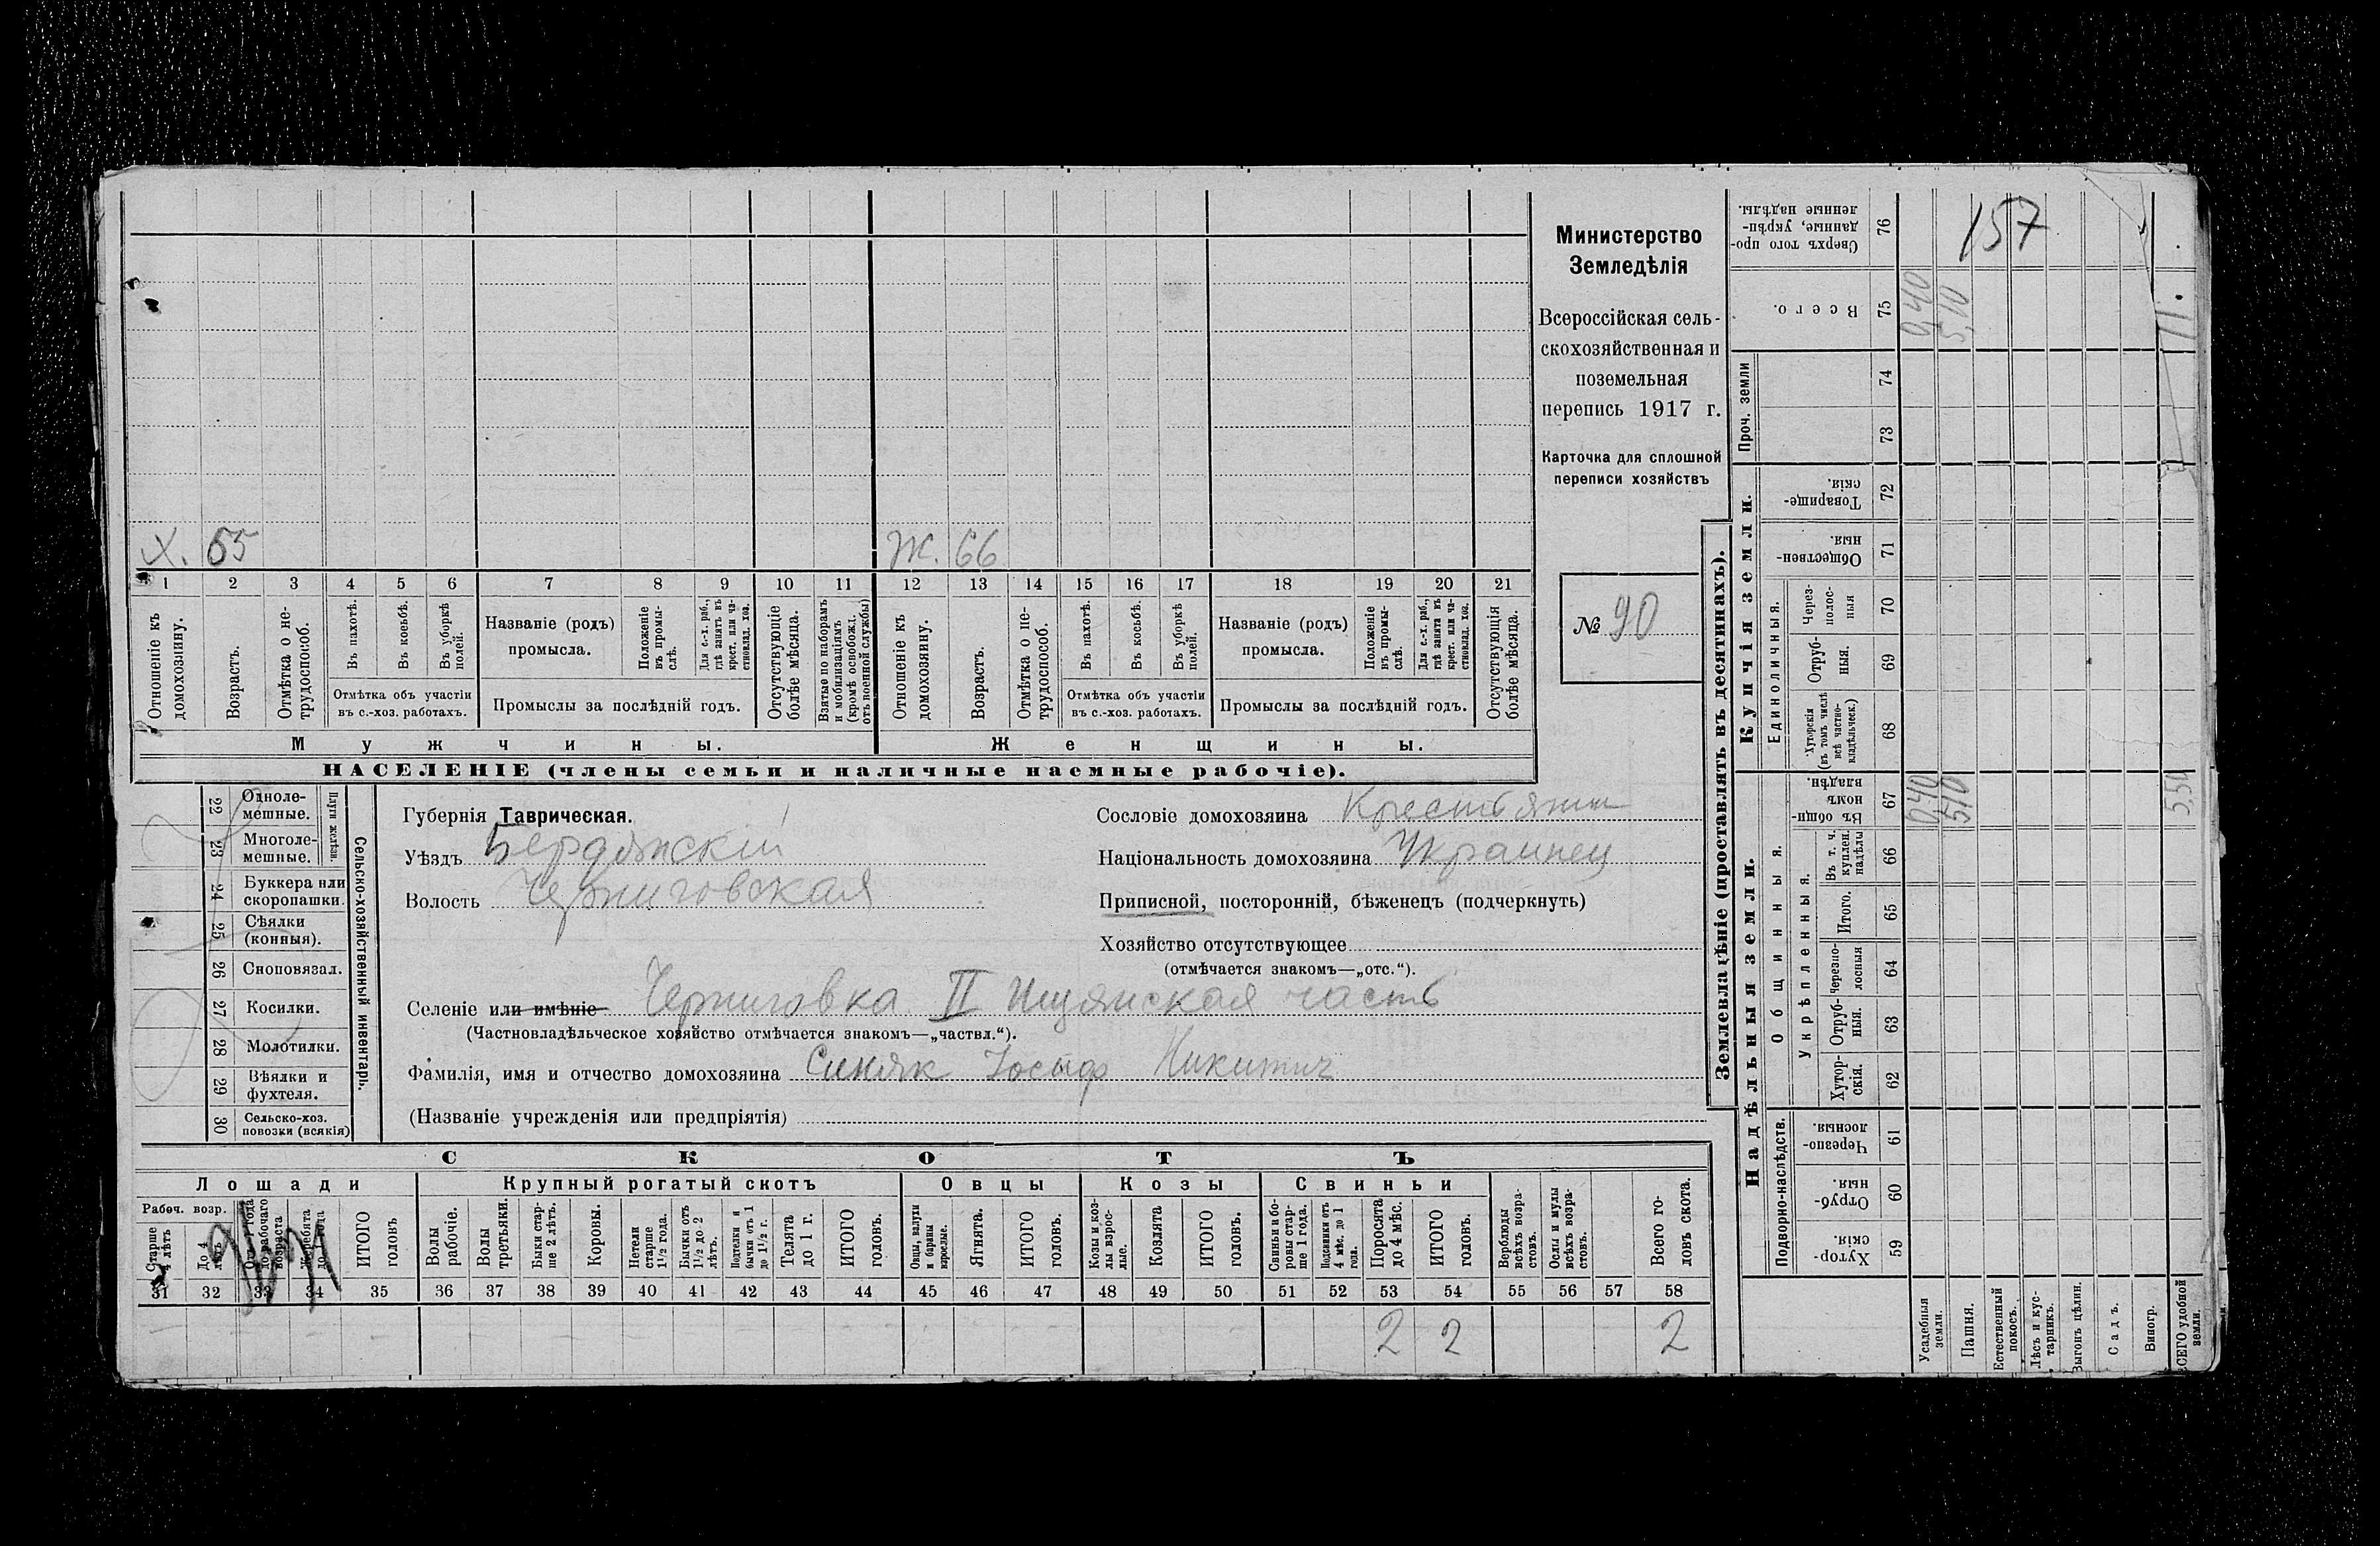 Министерство
Земледѣлія
Всероссійская сель-
скохозяйственная и
поземельная
перепись 1917 г.
Карточка для сплошной
переписи хозяйствъ
№ 90
Х. 65
Ж. 66
1 2 3 4 5 6 7 8 9 10 11 12 13 14 15 16 17 18 19 20 21
Отношеніе къ домохозяину.
Возрастъ.
Отмѣтка о не-трудоспособ.
Въ пахотѣ.
Въ косьбѣ.
Въ уборкѣ полей.
Отмѣтка объ участіи
въ с.-хоз. работахъ.
Названіе (родъ)
промысла.
Положеніе въ промы-слѣ.
Для с.-х. раб., гдѣ занятъ въ крест. или ча-стновлад. хоз.
Промыслы за послѣдній годъ.
Отсутствующіе болѣе мѣсяца.
Взятые по наборамъ и мобилизаціямъ (кромѣ освобожд. отъ военной службы)
Отношеніе къ домохозяину.
Возрастъ.
Отмѣтка о не-трудоспособ.
Въ пахотѣ.
Въ косьбѣ.
Въ уборкѣ полей.
Отмѣтка объ участіи
въ с.-хоз. работахъ.
Названіе (родъ)
промысла.
Положеніе въ промы-слѣ.
Для с.-х. раб., гдѣ занята въ крест. или ча-стновлад. хоз.
Промыслы за послѣдній годъ.
Отсутствующія болѣе мѣсяца.
Мужчины.
Женщины.
НАСЕЛЕНІЕ (члены семьи и наличные наемные рабочіе).
22 Одноле-мешные.
23 Многоле-мешные.
Плуги желѣзн.
24 Буккера или скоропашки.
25 Сѣялки (конныя).
26 Сноповязал.
27 Косилки.
28 Молотилки.
29 Вѣялки и фухтеля.
30 Сельско-хоз. повозки (всякія)
Сельско-хозяйственный инвентарь.
Губернія Таврическая.
Уѣздъ Бердянскій
Волость Черниговская
Сословіе домохозяина Крестьянин
Національность домохозяина Украинец
Приписной, посторонній, бѣженецъ (подчеркнуть)
Хозяйство отсутствующее
(отмѣчается знакомъ—„отс.“).
Селеніе или имѣніе Черниговка II часть
(Частновладѣльческое хозяйство отмѣчается знакомъ—„частвл.“).
Фамилія, имя и отчество домохозяина Синяк Иосиф Никитич
(Названіе учрежденія или предпріятія)
СКОТЪ
Лошади
Крупный рогатый скотъ
Овцы
Козы
Свиньи
Рабоч. возр.
Старше 4 лѣтъ
До 4 лѣтъ
Отъ 1 года до рабочаго возраста
Жеребята до 1 года
ИТОГО головъ
Волы рабочіе.
Волы третьяки.
Быки стар-ше 2 лѣтъ.
Коровы.
Нетели старше 1½ года.
Бычки отъ 1½ до 2 лѣтъ.
Подтелки и бычки отъ 1 до 1½ г.
Телята до 1 г.
ИТОГО головъ.
Овцы, валухи и бараны взрослые.
Ягнята.
ИТОГО головъ.
Козы и коз-лы взрос-лые.
Козлята
ИТОГО головъ.
Свиньи и бо-ровы стар-ше 1 года.
Подсвинки отъ 4 мѣс. до 1 года.
Поросята до 4 мѣс.
ИТОГО головъ.
Верблюды всѣхъ возра-стовъ.
Ослы и мулы всѣхъ возра-стовъ.
Всего го-ловъ скота.
31 32 33 34 35 36 37 38 39 40 41 42 43 44 45 46 47 48 49 50 51 52 53 54 55 56 57 58
2 2 2
Землевладѣніе (проставлять въ десятинахъ).
Надѣльныя земли.
Купчія земли.
Проч. земли
Подворно-наслѣдств.
Общинныя.
Укрѣпленныя.
Единоличныя.
Хутор-скія. 59
Отруб-ныя. 60
Черезпо-лосныя. 61
Хутор-скія. 62
Отруб-ныя. 63
Черезпо-лосныя 64
Итого. 65
Въ т. ч. куплен. надѣлы 66
Въ общи-номъ владѣн. 67
Хуторскія (въ томъ числѣ всѣ частно-владѣльческ.) 68
Отруб-ныя. 69
Через-полос-ныя 70
Обществен-ныя. 71
Товарище-скія. 72
73
74
Всего. 75
Сверхъ того про-данные, укрѣп-ленные надѣлы. 76
157
0,40
5,10
0,40
5,10
5,50
Усадебныя земли.
Пашня.
Естественный покосъ.
Лѣсъ и кус-тарникъ.
Выгонъ цѣлин.
Садъ.
Виногр.
ВСЕГО удобной земли.